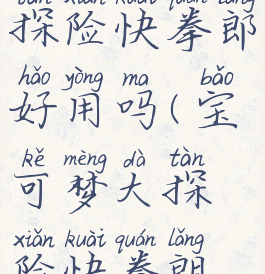 探险快拳郎
hǎo yòng ma bǎo
好用吗(宝
kě mèng dà tàn
可梦大探
xiǎn kuài quán lǎng
险快拳郎